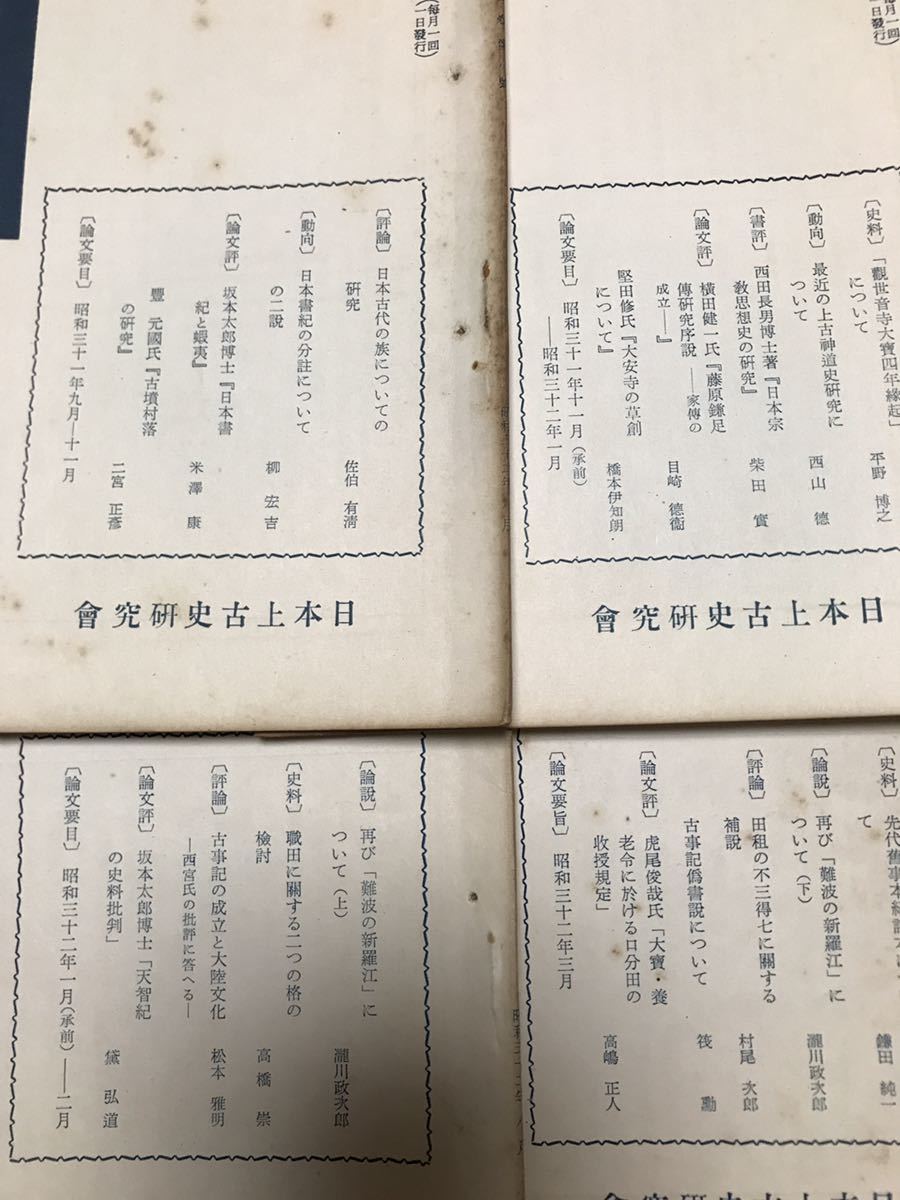 (每月一回
一日發行)
〔評論〕 日本古代の族についての
研究 佐伯 有淸
〔動向〕 日本書紀の分註について
の二說 柳 宏吉
〔論文評〕 坂本太郎博士『日本書
紀と蝦夷』 米澤 康
豐 元國氏『古墳村落
の研究』 二宮 正彥
〔論文要目〕 昭和三十一年九月―十一月
日本上古史硏究會
(每月一回
一日發行)
〔史料〕 「觀世音寺大寶四年緣起」
について 平野 博之
〔動向〕 最近の上古神道史硏究に
ついて 西山 德
〔書評〕 西田長男博士著『日本宗
敎思想史の硏究』 柴田 實
〔論文評〕 横田健一氏『藤原鎌足
傳硏究序說――家傳の
成立――』 目崎 德衞
堅田修氏『大安寺の草創
について』 橋本伊知朗
〔論文要目〕 昭和三十一年十一月(承前)
――昭和三十二年一月
日本上古史硏究會
〔論說〕 再び「難波の新羅江」に
ついて(上) 瀧川政次郎
〔史料〕 職田に關する二つの格の
檢討 高橋 崇
〔評論〕 古事記の成立と大陸文化
―西宮氏の批評に答へる― 松本 雅明
〔論文評〕 坂本太郎博士「天智紀
の史料批判」 黛 弘道
〔論文要目〕 昭和三十二年一月(承前)――二月
〔史料〕 先代舊事本紀
て 鎌田 純一
〔論說〕 再び「難波の新羅江」に
ついて(下) 瀧川政次郎
〔評論〕 田租の不三得七に關する
補說 村尾 次郎
古事記僞書說について 筏 勳
〔論文評〕 虎尾俊哉氏「大寶・養
老令に於ける口分田の
收授規定」 高嶋 正人
〔論文要旨〕 昭和三十二年三月
日本上古史硏究會